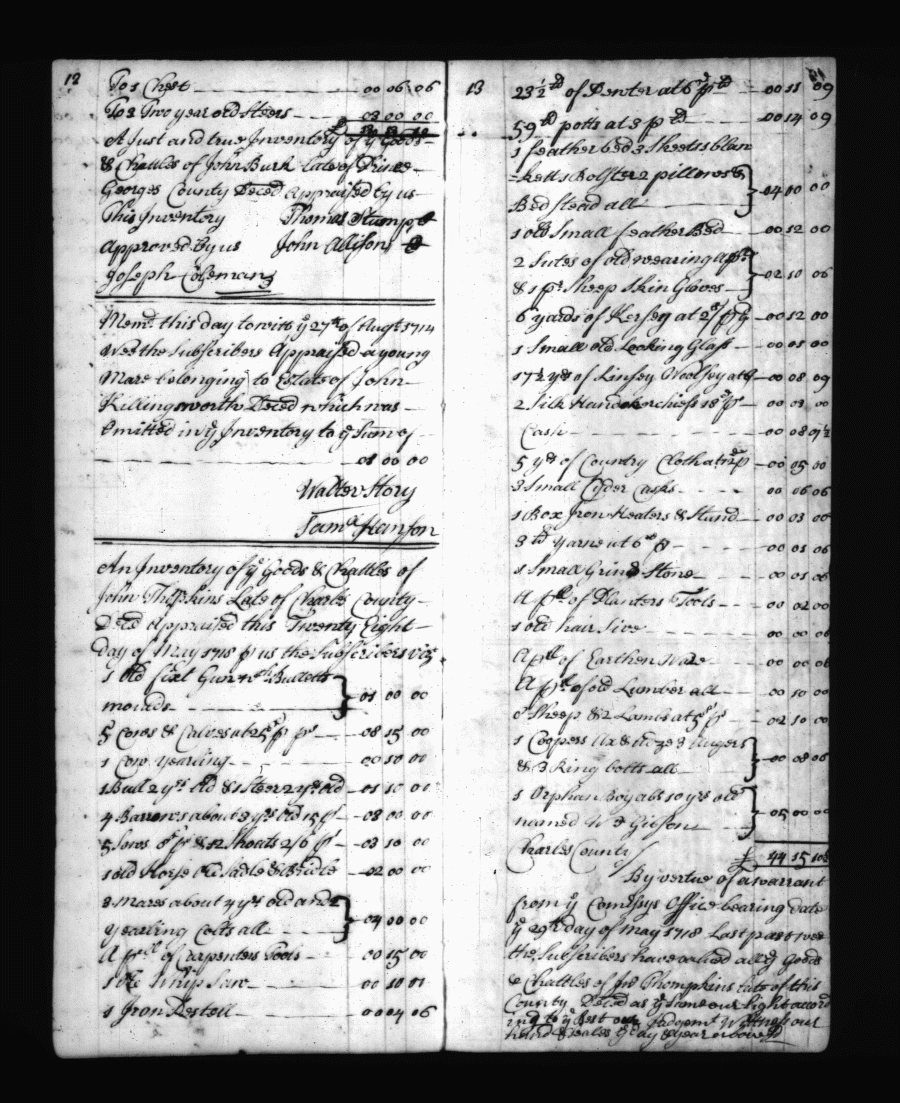 12
To 1 Chest 00 06 06
To 3 Two year old Steers 03 00 00
A Just and true Inventory of ye Goods
& Chattles of John Burk late of Prince
Georges County Deced Appraised by us
This Inventory Thomas Stump
Approved by us John Allison
Joseph Coleman
Memd. this day towitt ye 27th of Augt 1714
Wee the Subscribers Appraised a young
Mare belonging to Estate of John
Killingsworth Deced which was
Omitted in ye Inventory to ye Sum of
01 00 00
Walter Story
Saml Hanson
An Inventory of ye Goods & Chattles of
John Thopkins Late of Charles County
Deced Appraised this Twenty Eight
day of May 1718 p us the Subscribers Viz
1 Old fixt Gun wth Bulletts
moulds 01 00 00
5 Cows & Calves at 25s p pr 08 15 00
1 Cow yearling 00 10 00
1 Bull 2 yrs Old & 1 Steer 2 yrs old 01 10 00
4 Barrows about 3 yrs Old 15 p 03 00 00
5 Sows & 12 Shoats 2/6 p 03 10 00
1 old Horse Old Sadle & Bridle 02 00 00
3 Mares about 4 yrs old and 2
yearling Colts all 04 00 00
A prcll of Carpenters Tools 00 15 00
1 Old Whip Saw 00 10 01
1 Iron Pestell 00 04 06
13
23 1/2 ld of Pewter at 6d p ld 00 11 09
59 ld potts at 3 p ld 00 14 09
1 feather bed 3 Sheets 1 blan
=ketts Bolster 2 pillows &
Bedstead all 04 00 00
1 old Small feather Bed 00 12 00
2 Sutes of old wearing appl
& 1 pr Sheep Skin Gloves 02 10 06
6 yards of Kersey at 2s p y 00 12 00
1 Small old Looking Glass 00 01 00
17 1/2 yds of Linsey Woolsey at 00 08 09
2 Silk Handokerchiefs 18d p 00 03 00
Cash 00 08 01 1/2
5 yds of Country Cloth at 12d p 00 05 00
3 Small Cyder Casks 00 06 06
1 Box Iron Heaters & Stand 00 03 00
3 ld yarne at 6d p 00 01 06
1 Small Grind Stone 00 01 06
A pll of Planters Tools 00 02 00
1 old hair Sive 00 00 06
A pll of Earthen Ware 00 00 06
A pll of old Lumber all 00 10 00
Sheep & 2 Lambs at 5s p 02 10 00
1 Coopers Ax & Adze 3 Augers
& 3 Ring bolts all 00 08 06
1 Orphan Boy abt 10 yrs old
named Wm Gibson 05 00 00
Charles County £ 44 15 10
By vertue of a warrant
from ye Comissys Office bearing date
ye 29th day of May 1718 Last past wee
the Subscribers have valued all ye goods
& Chattles of Jno Thompkins late of this
County Deced as ye Same our Sight accord
ing to ye best our Judgemt Witness our
hand & Seales ye day & year above